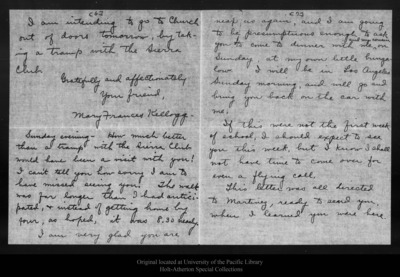 (2)
I am intending to go to Church
out of doors tomorrow, by tak-
ing a tramp with the Sierra
Club.
Gratefully and affectionately
Your friend,
Mary Frances Kellogg.
Sunday evening - How much better
than a tramp with the Sierra Club
would have been a visit with you!
I can't tell you how sorry I am to
have missed seeing you! The walk
was far longer than I had antici-
pated, & instead of getting home by
four, as hoped, it was 8.30 nearly.
I am very glad you are
near us again, and I am going
to be presumptuous enough to ask
you to come to dinner with me, on
Sunday, at my own little bunga-
low. I will be in Los Angeles
Sunday morning, and will go and
bring you back on the car with
me.
If this were not the first week
of school, I should expect to see
you this week, but I know I shall
not have time to come over for
even a flying call.
This letter was all directed
to Martinez, ready to send you,
when I learned you were here.
Original located at University of the Pacific Library
Holt-Atherton Special Collections